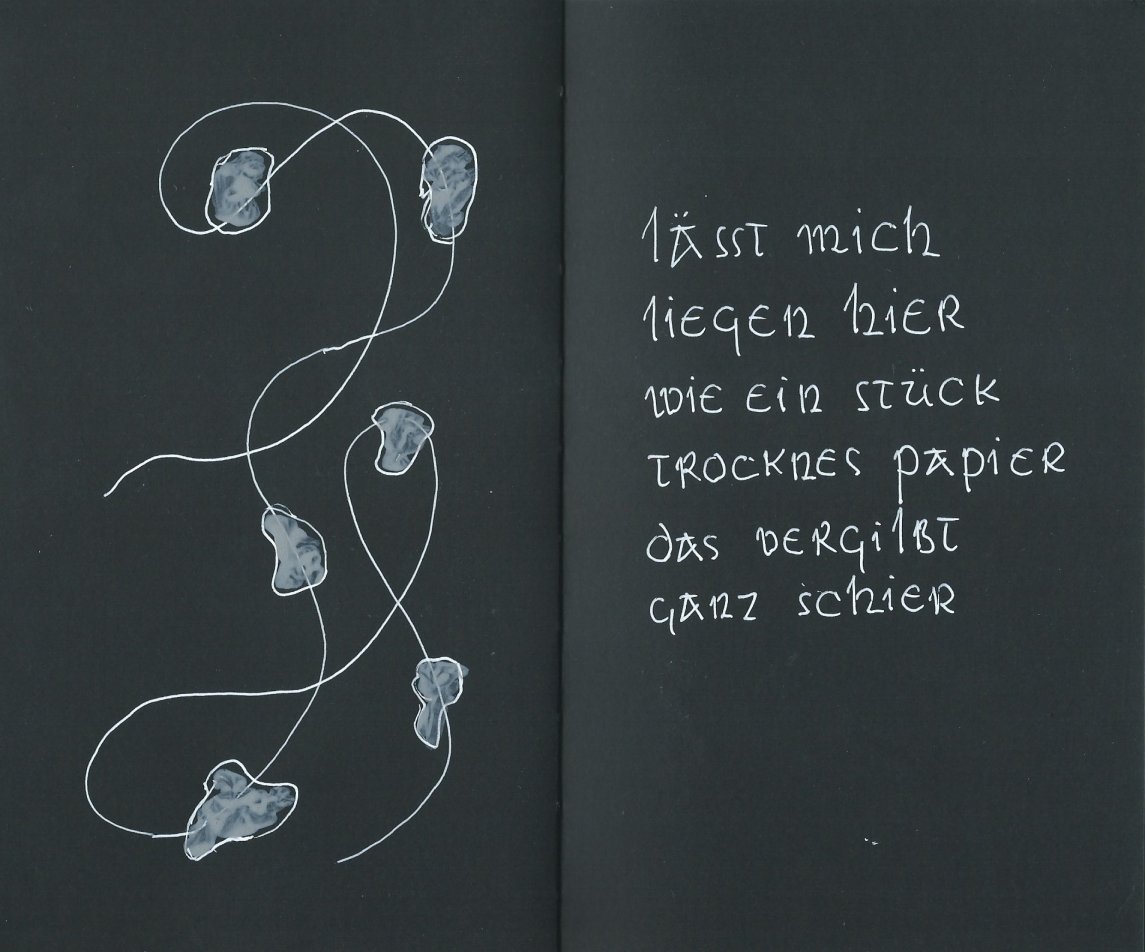 lässt mich
liegen hier
wie ein stück
trocknes papier
das vergilbt
ganz schier